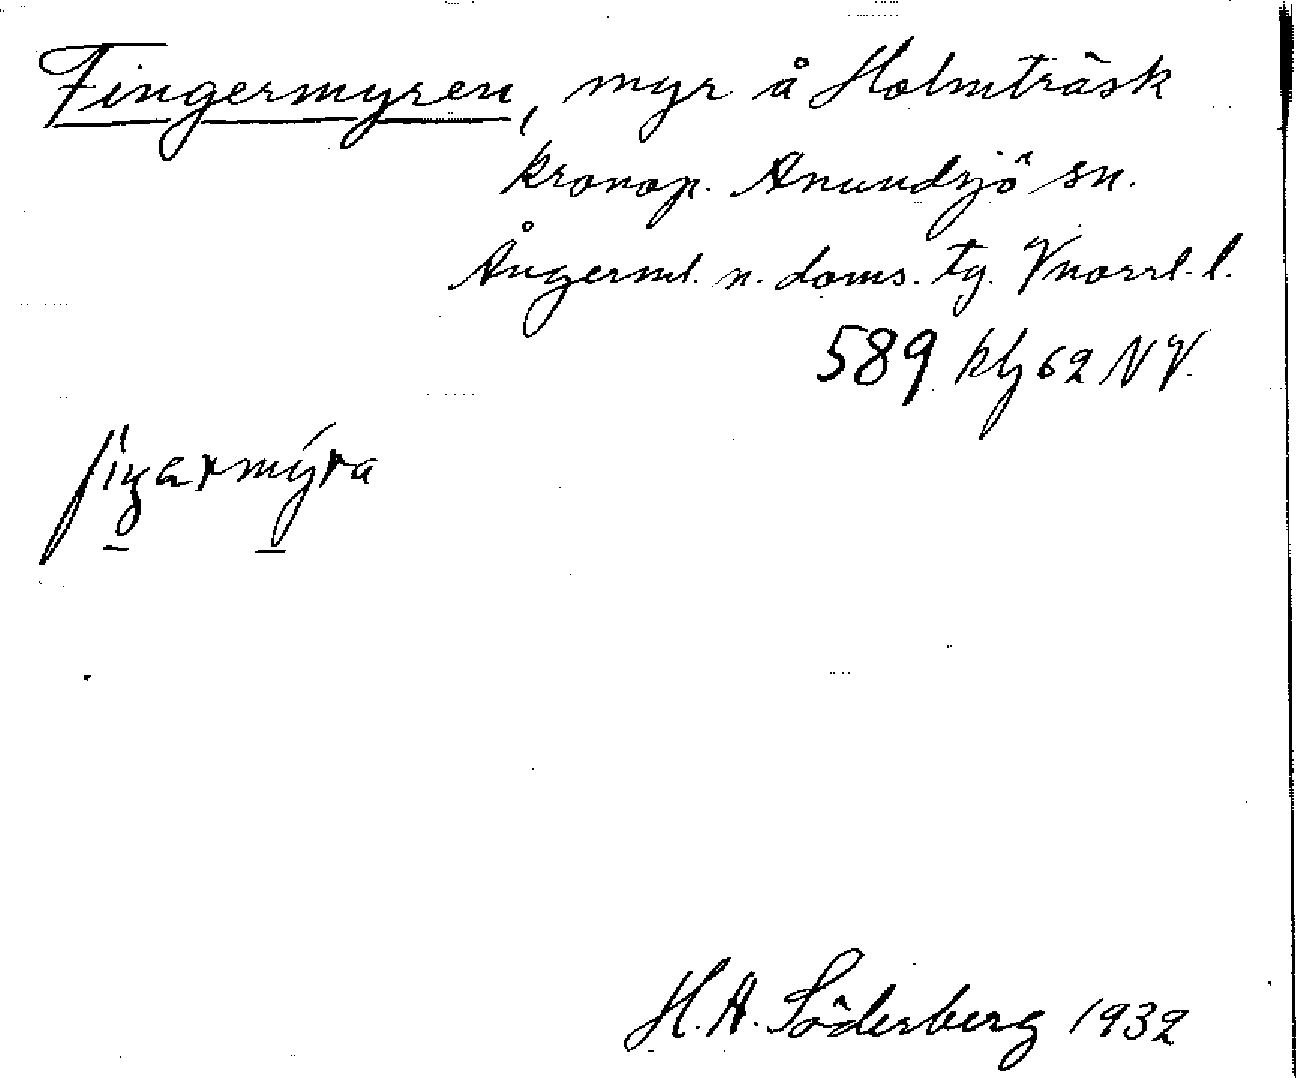 Fingermyren, myr å Holmträsk
kronop. Anundsjö sn.
Ångerml. n. doms. tg. Vnorrl. l.
589 kbl 62 NV.
fìŋarmýra
H.A. Söderberg 1932